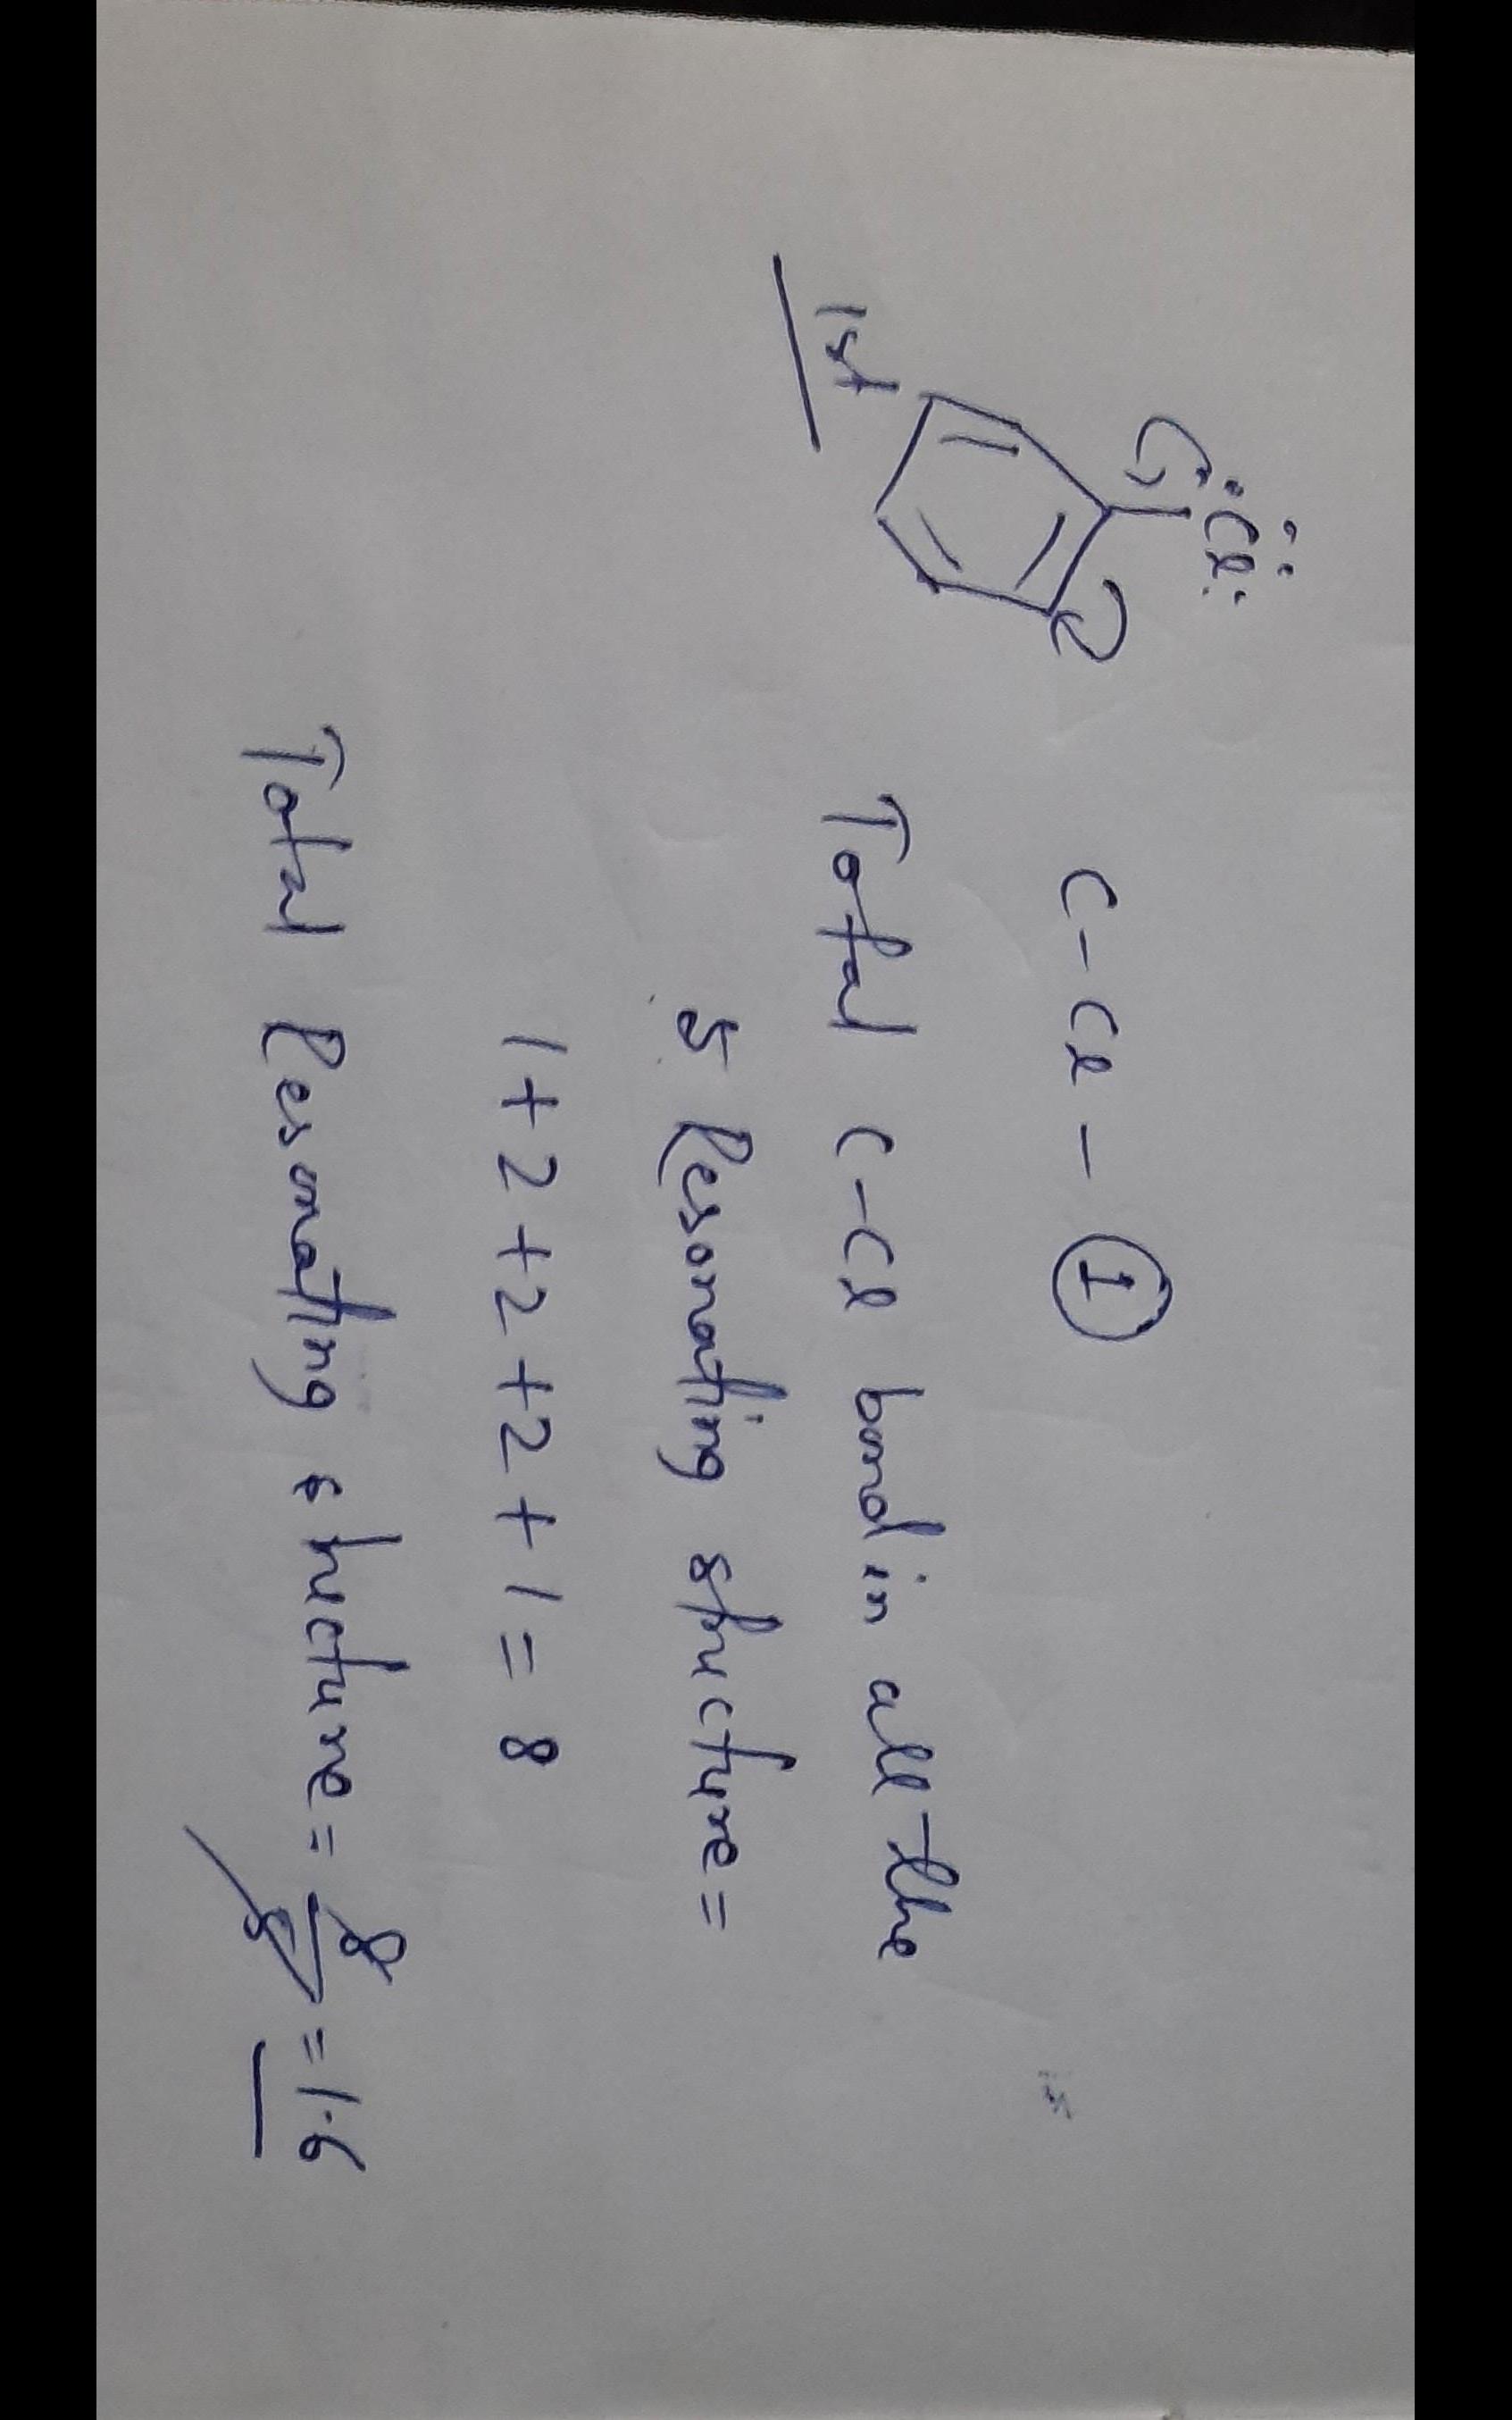 :Cl:
1st
C-Cl - 1
Total C-Cl bond in all the
5 Resonating structure =
1+2+2+2+1 = 8
Total Resonating structure = 8/5 = 1.6